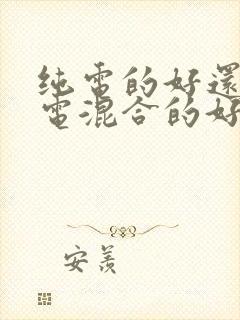 纯電的好還
電混合的好
安羨